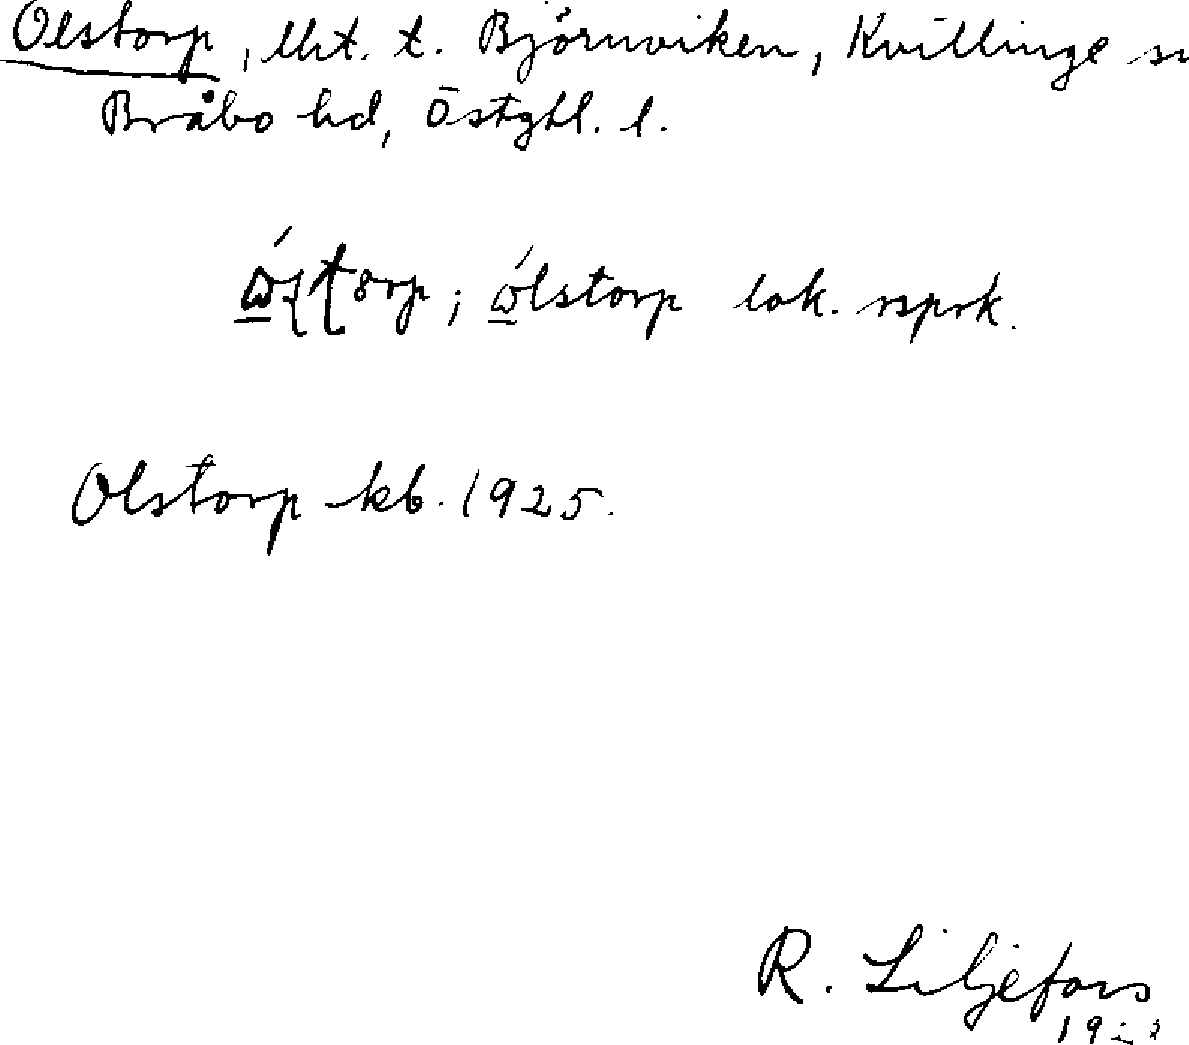 Olstorp, lht. t. Björnviken, Kvillinge sn
Bråbo hd, Östgtl. l.
ólstorp lok. rsprk.
Olstorp kb. 1925.
R. Liljefors